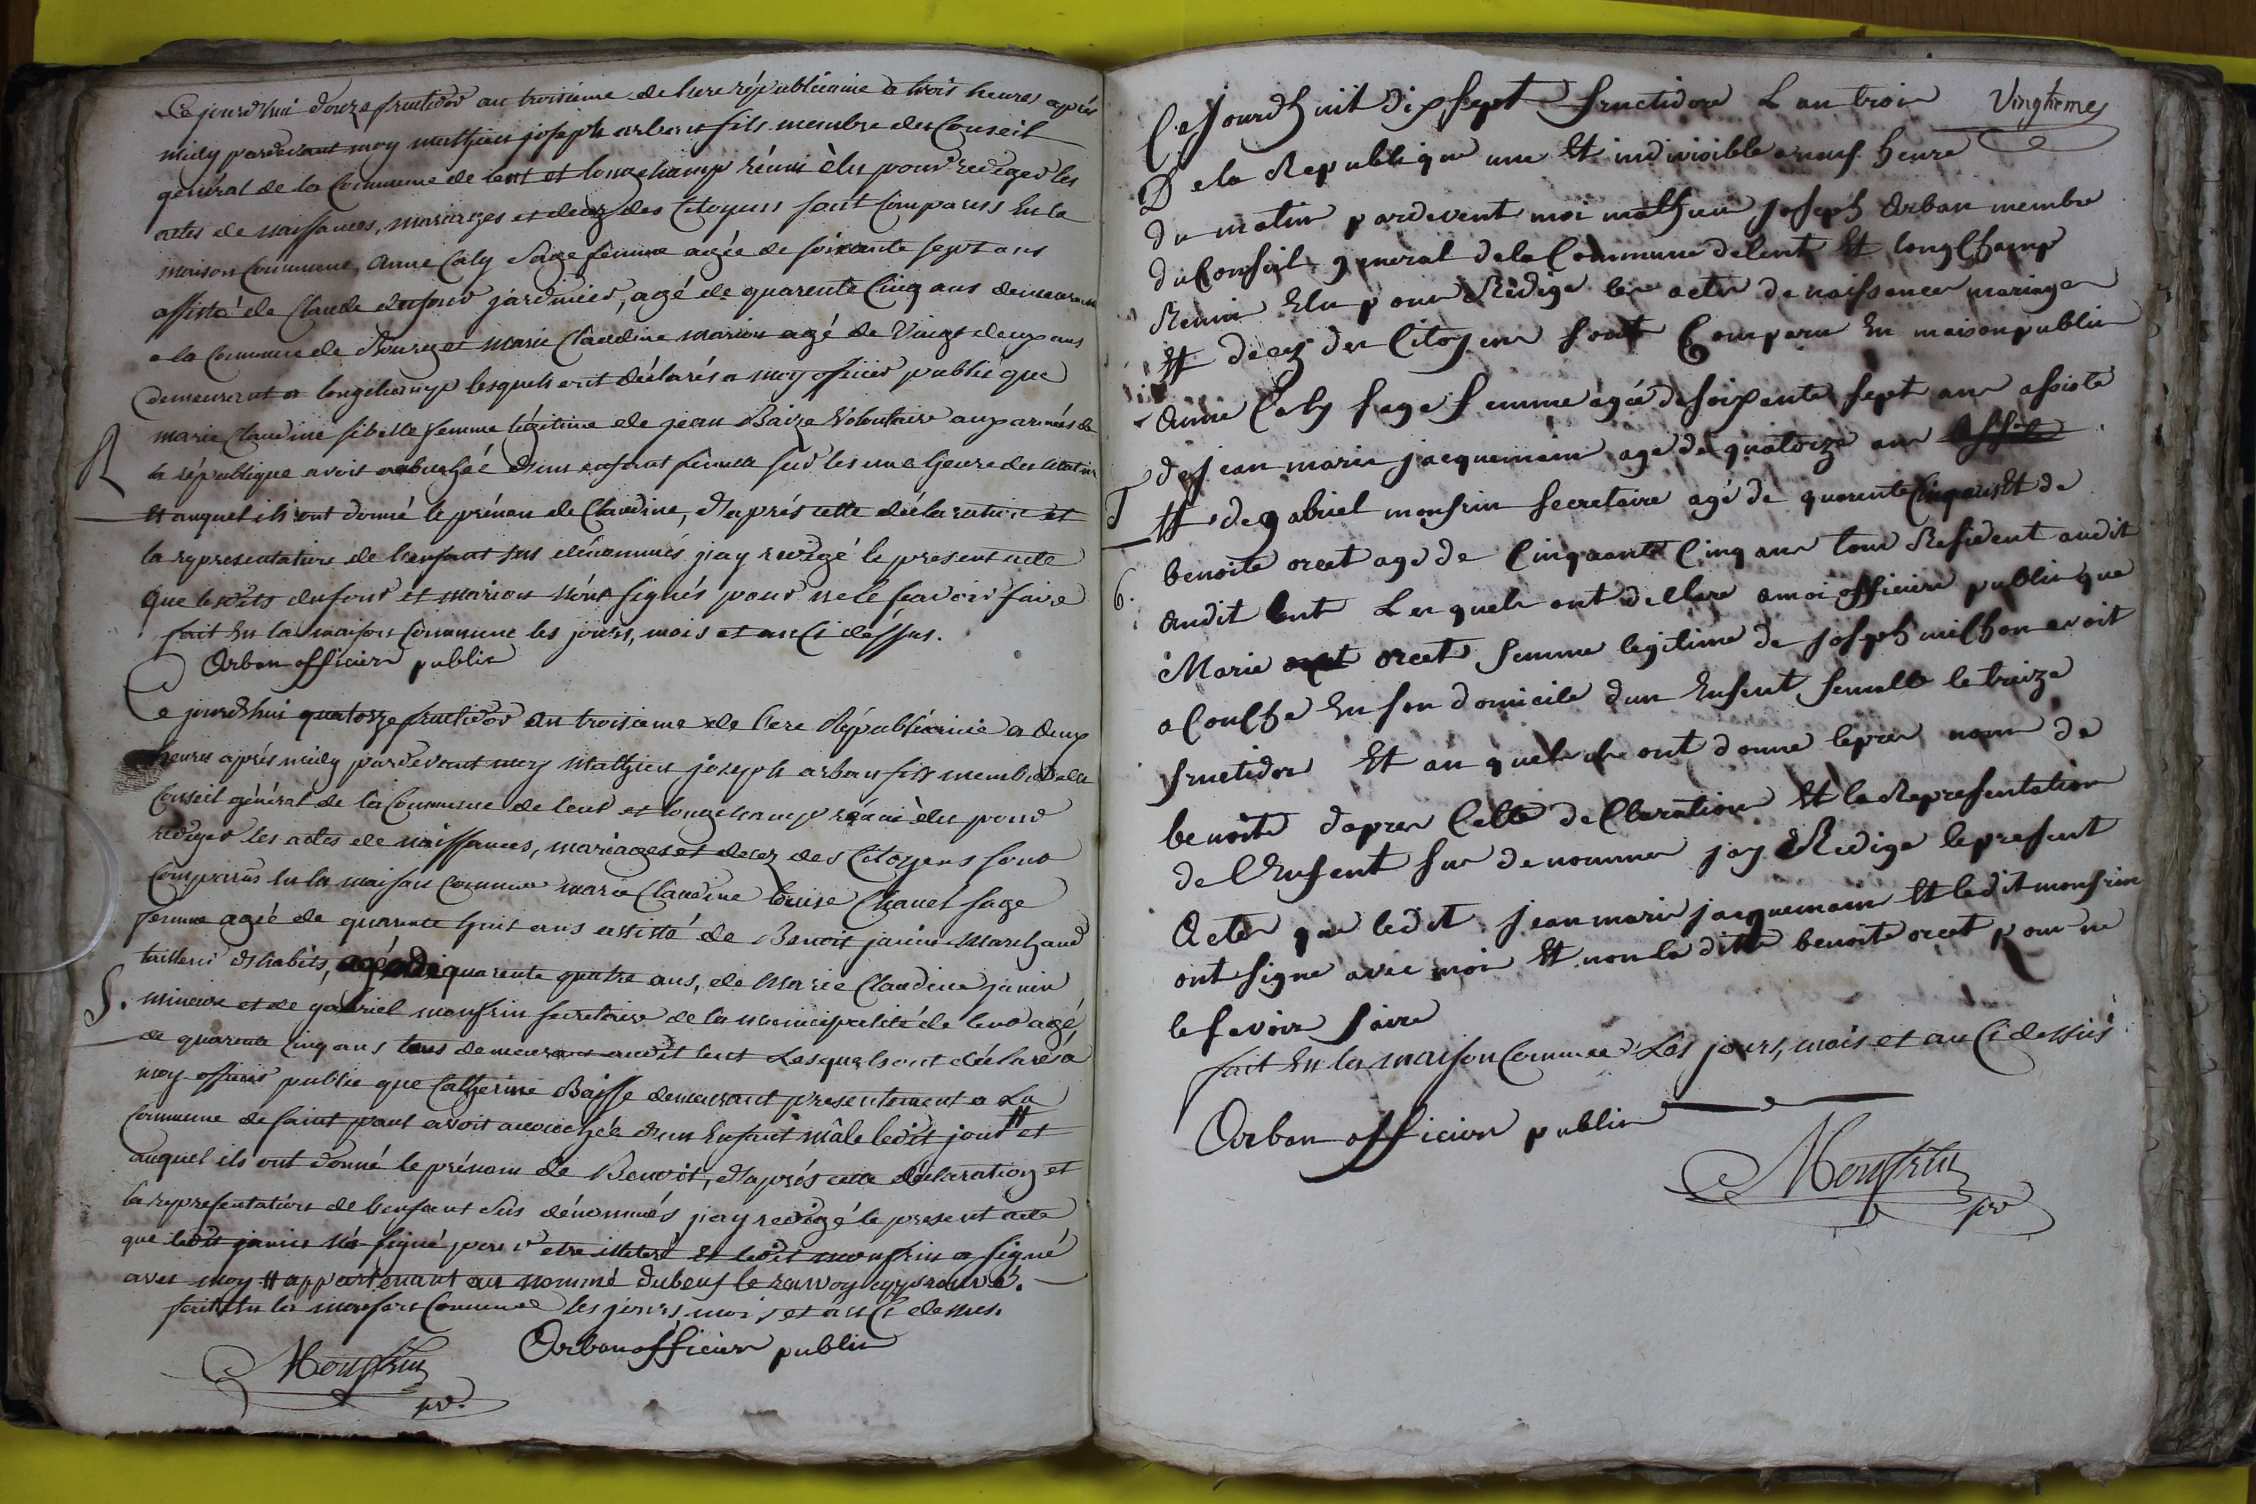 Ce jourd'hui douze fructidor an troisieme de l'ere républicaine a trois heures après
midy pardevant moy mathieu joseph arban fils membre du Conseil
général de la Commune de lent et longchamp réuni élu pour rediger les
actes de naissances, mariages et decez des Citoyens sont Comparus En la
maison Commune, Anne Caly Sage femme agée de soixante sept ans
assisté de Claude dufour jardinier, agé de quarente Cinq ans demeurant
a la Commune de Bourg et marie Claudine marion agé de Vingt deux ans
demeurant a longchamp lesquels ont déclarés a moy officier public que
marie Claudine femme légitime de jean Baize Volontaire aux armées de
la république avoit accouchée d'un enfant femelle sur les une heure du matin
Et auquel ils ont donné le prénom de Claudine, d'après cette déclaration et
la representation de l'enfant sus dénommés j'ay redigé le present acte
que lesdits dufour et marion n'ont signés pour ne le sçavoir faire
fait En la maison Commune les jours, mois et an Ci dessus.
Arban officier public
R
Ce jourd'hui quatorze fructidor an troisieme de l'ere Républicaine a deux
heures après midy pardevant moy Mathieu joseph arban fils membre de
Conseil général de la Commune de lent et longchamp réuni élu pour
rediger les actes de naissances, mariages et decez des Citoyens sont
Comparus En la maison Commune marie Claudine louise Chanel sage
femme agée de quarente huit ans assisté de Benoit janin Marchand
tailleur d'habits, agé de quarente quatre ans, de Marie Claudine janin
S. mineure et de gabriel monfrin secretaire de la municipalité de lent agé
de quarente Cinq ans tous demeurans audit lent Lesquels ont déclarés a
moy officier public que Catherine Baisse demeurant presentement a La
Commune de saint paul avoit accouchée d'un Enfant mâle ledit jour # et
auquel ils ont donné le prénom de Benoit, d'après cette déclaration et
la representation de l'enfant sus dénommés j'ay redigé le present acte
que ledit janin n'a signé pour etre illeteré et ledit monfrin a signé
avec moy # appartenant au nommé dubeuf le renvoy approuvé.
fait En la maison Commune les jours, mois et an Ci dessus.
Arban officier public
Monfrin
Vingtieme
Ce Jourd'huit dix sept fructidor L an trois
De la Republique une Et indivisible a neuf heure
du matin pardevent moi mathieu joseph Arban membre
du Conseil general de la Commune de lent Et longChamp
Reuni Elu pour Redige les actes de naissences mariages
Et decez des Citoyens sont Comparu En maison public
Anne Caly sage femme agée de soixante sept ans assiste
de jean marie jacquemain age de quatorze ans
Et de gabriel monfrin secretaire agé de quarente Cinq ans Et de
benoite orcet age de Cinquante Cinq ans tous Resident audit
6.
Audit lent Lesquels ont declare a moi officier public que
Marie orcet femme legitime de joseph michon avoit
a Couche En son domicile dun Enfent femelle le treize
fructidor Et au quel ils ont donne le pre nom de
benoite dapres Cette declaration Et la Representation
de l'Enfent sus denommes jay Redige le present
Acte que ledit jean marie jacquemain Et ledit monfrin
ont signe avec moi Et non la ditte benoite orcet pour ne
le savoir faire
fait En la maison Commune Les jours, mois et an Ci dessus
Arban officier public
Monfrin